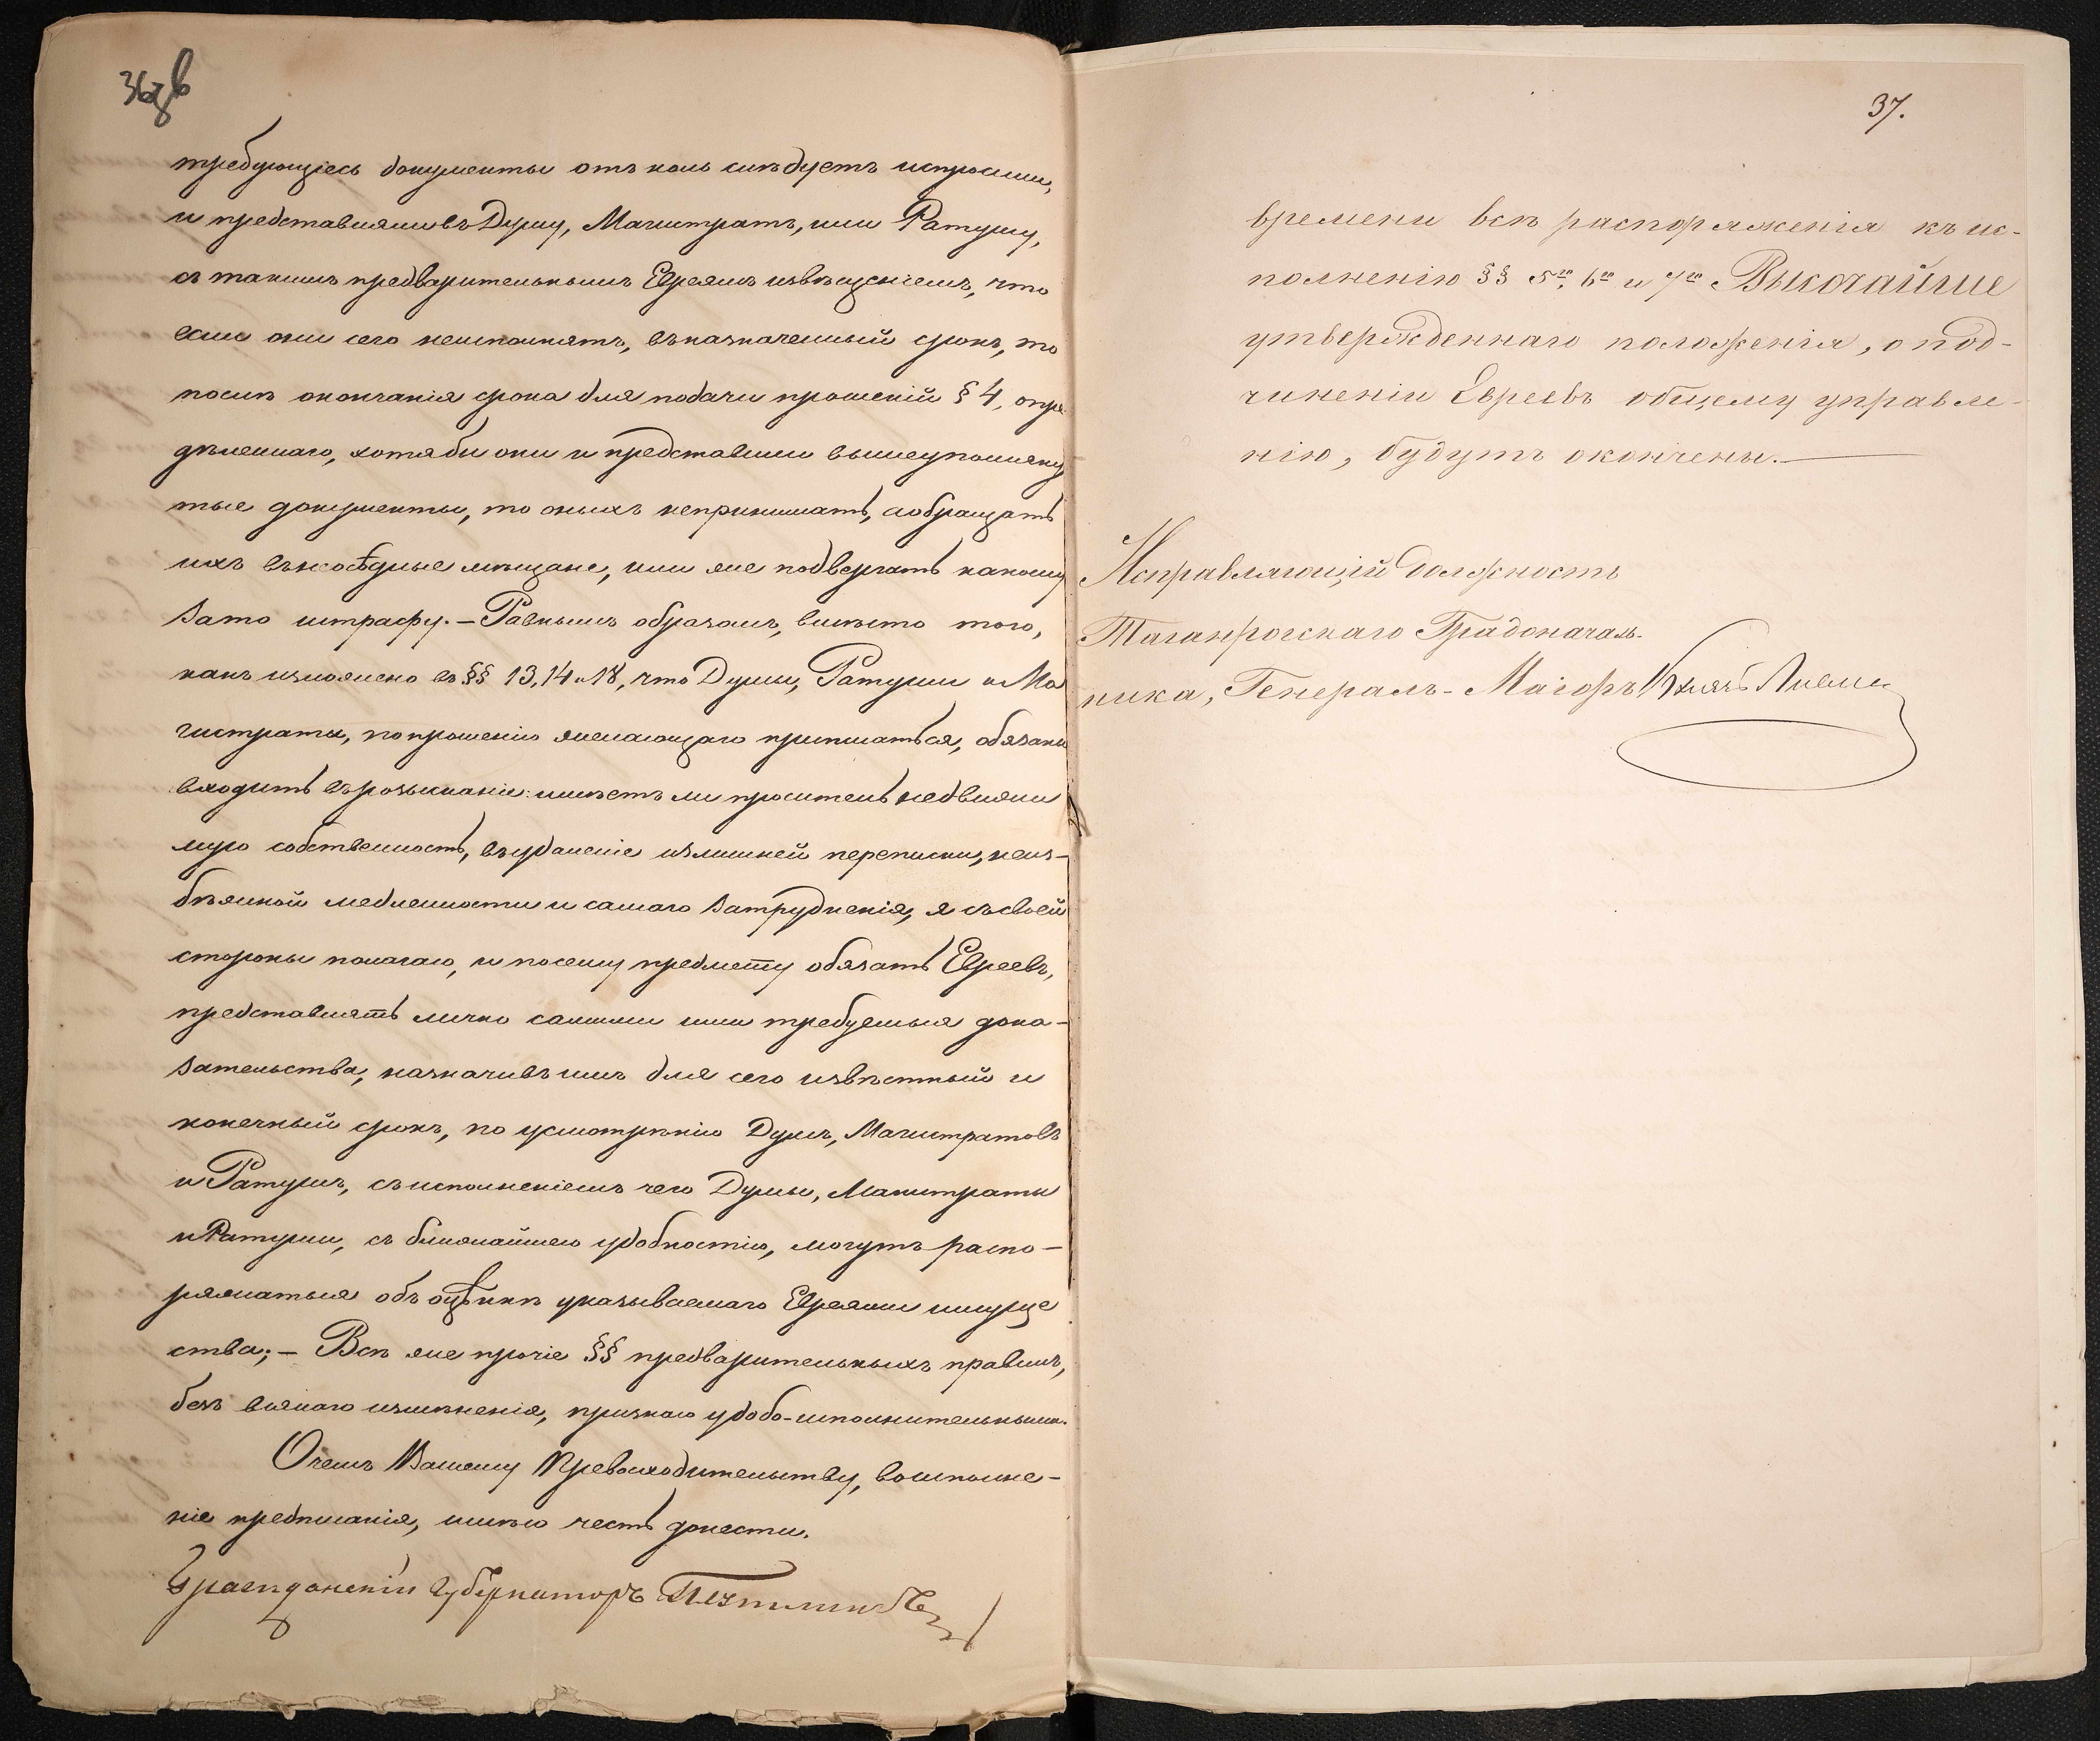 36об
требующіесь документы отъ коль слѣдуетъ испросили,
и представляли въ Думу, Магистратъ, или Ратушу,
съ такимъ предварительнымъ Евреямъ извѣщеніемъ, что
если они сего неисполнятъ, въ назначенный срокъ, то
послѣ окончанія срока для подачи прошеній § 4, опре
дѣленнаго, хотябы они и представили вышеупомяну
тые документы, то оныхъ непринимать, а обращать
ихъ въ неосѣдлые мѣщане, или же подвергать какому
зато штрафу. — Равнымъ образомъ, вмѣсто того,
какъ изъяснено въ §§ 13, 14 и 18, что Думы, Ратуши и Ма
гистраты, по прошенію желающаго приписаться, обязаны
входить въ розысканіе: имѣетъ ли проситель недвижи
мую собственность, въ убѣжаніе излишней переписки, неиз-
бѣжной медленности и самаго затрудненія, я съ своей
стороны полагаю, и по сему предмету обязать Евреевъ,
представлять лично самими ими требуемыя дока-
зательства, назначивъ имъ для сего извѣстный и
конечный срокъ, по усмотрѣнію Думъ, Магистратовъ
и Ратушъ, съ исполненіемъ чего Думы, Магистраты
и Ратуши, съ ближайшею удобностію, могутъ распо-
ряжаться объ оцѣнкѣ указываемаго Евреями имуще
ства; — Всѣ же прочіе §§ предварительныхъ правилъ,
безъ всякаго измѣненія, признаю удобо-исполнительными.
О чемъ Вашему Превосходительству, во исполне-
ніе предписанія, имѣю честь донести.
Гражданскій Губернаторъ
37.
времени всѣ распоряженія къ ис-
полненію §§ 5го, 6го и 7го Высочайше
утвержденнаго положенія, о под-
чиненіи Евреевъ общему управле-
нію, будутъ окончены. —
Исправляющій должность
Таганрогскаго Градоначаль-
ника, Генералъ-Маіоръ Князь Ливенъ